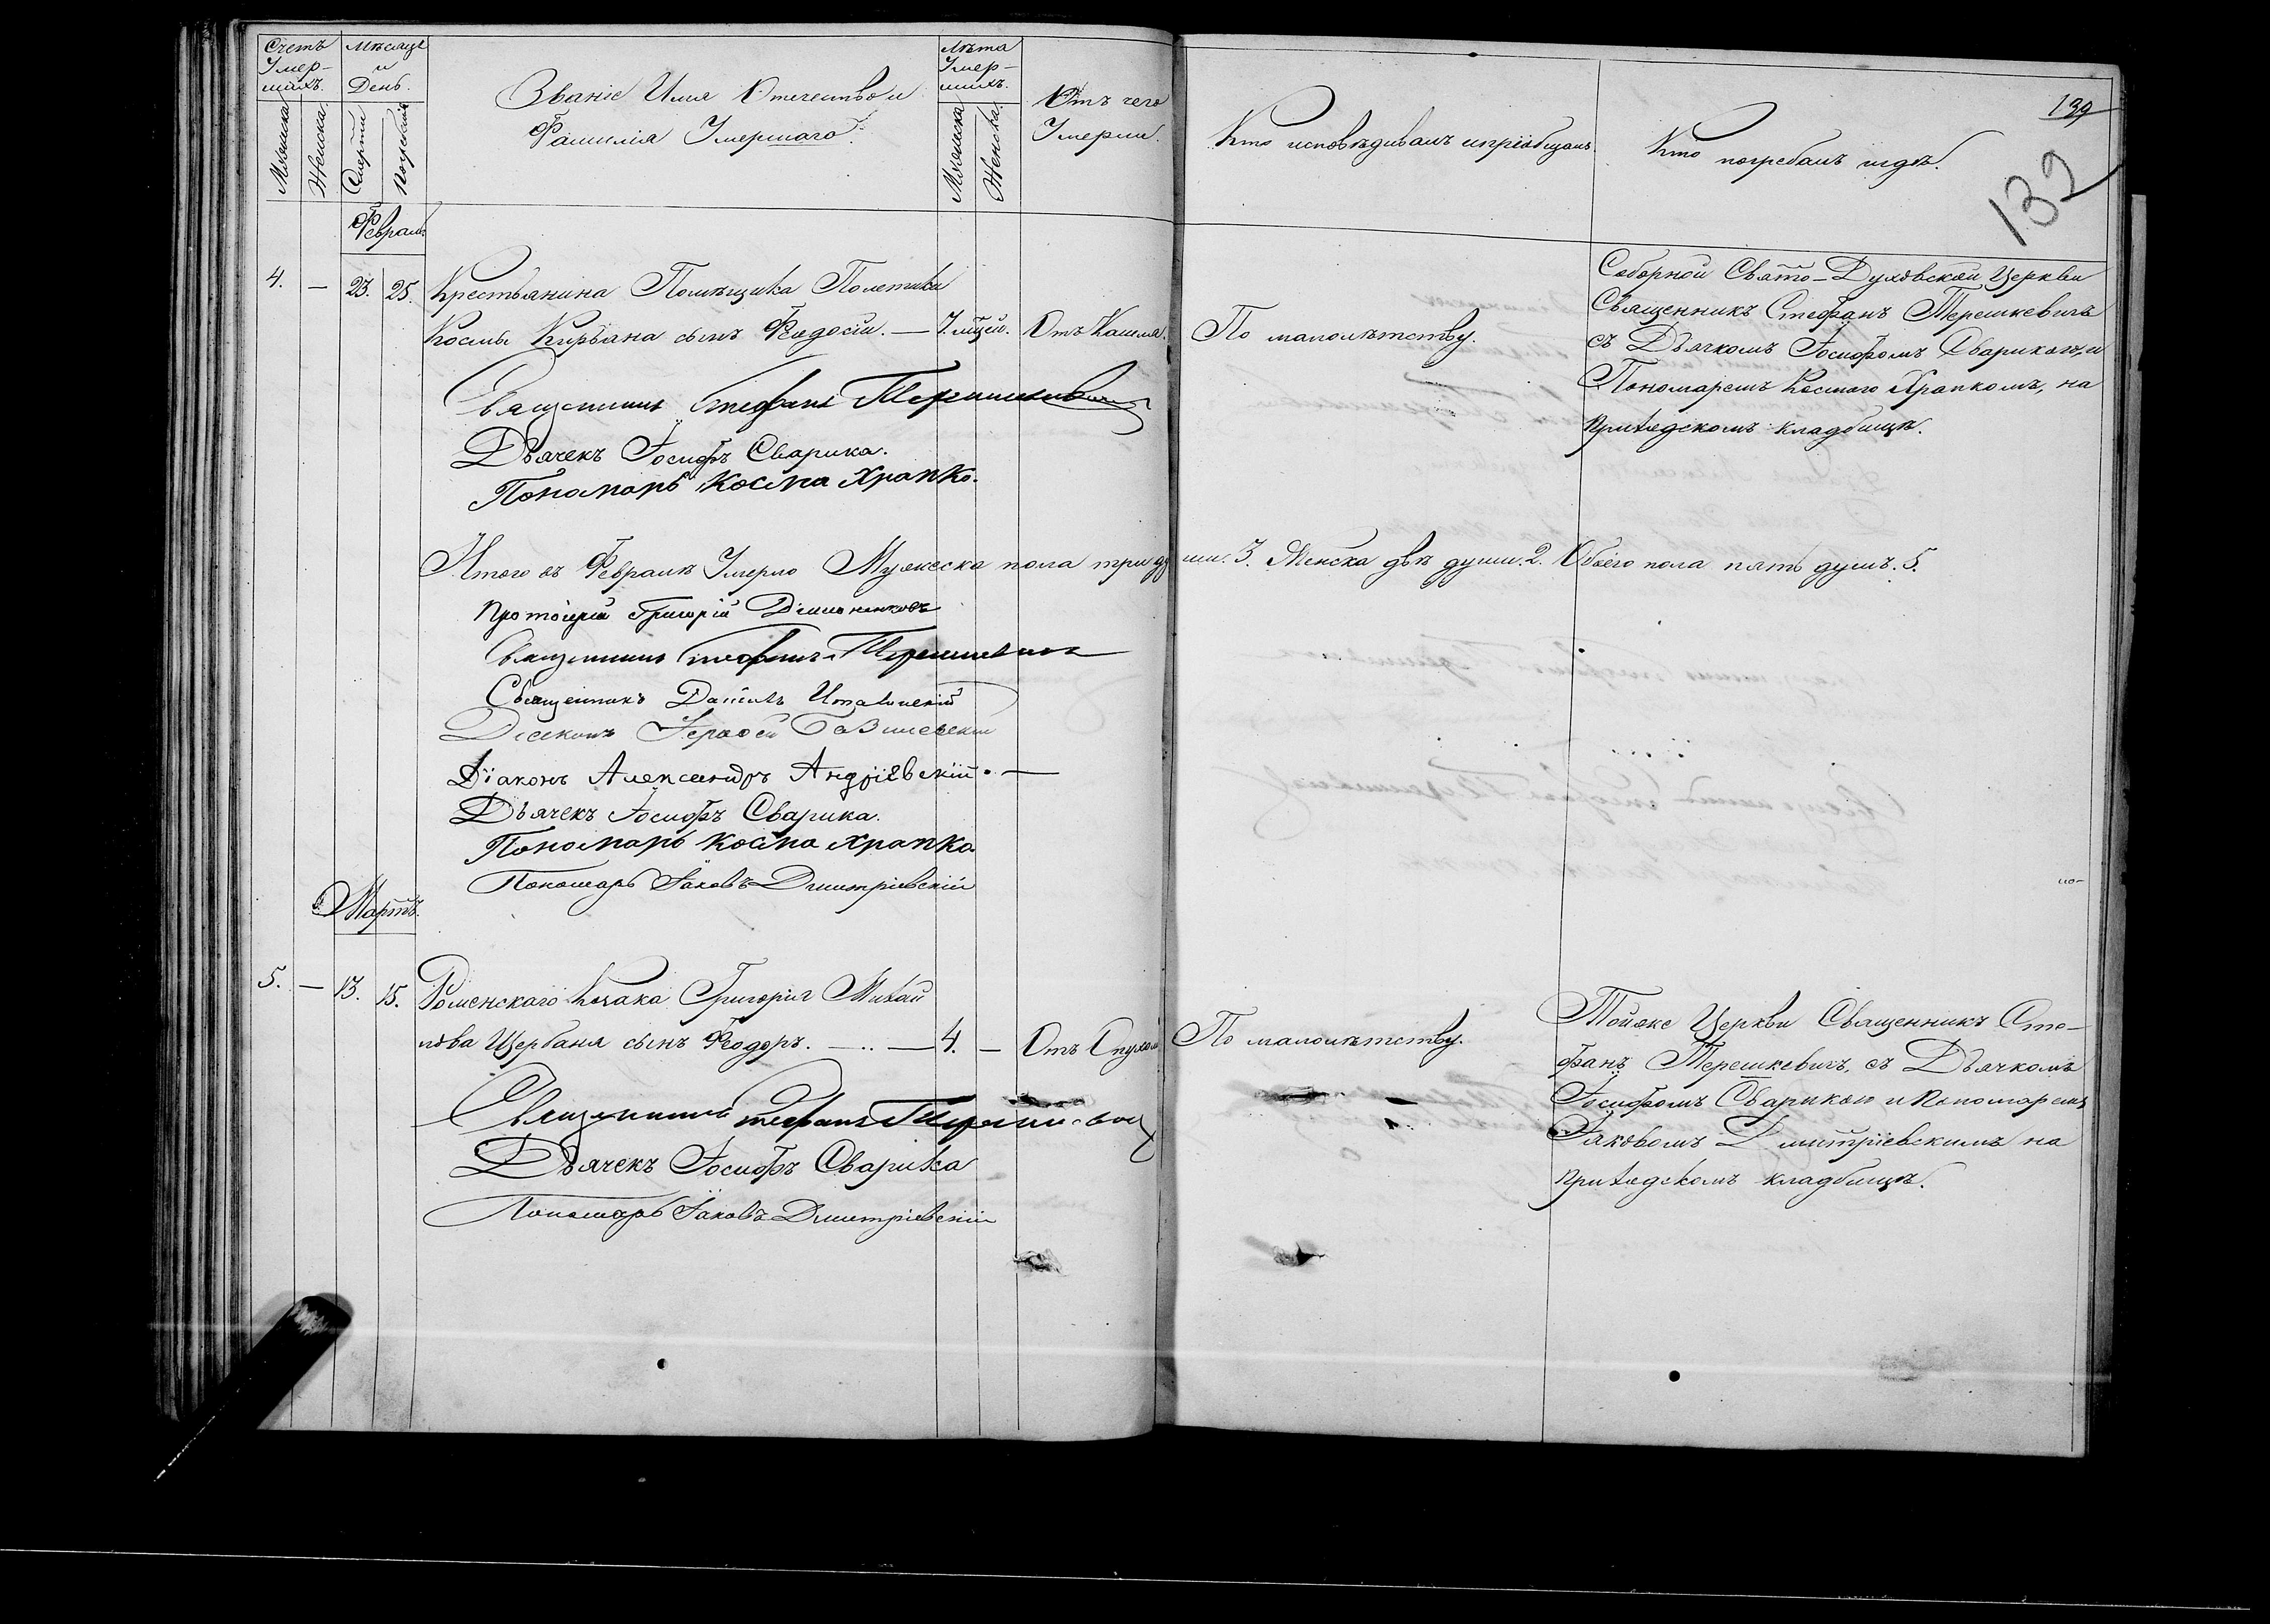 Счетъ
Умер-
шихъ.
Мѣсяцъ
и
День.
Званіе Имя Отчество и
Фамилія Умершаго.
Лѣта
Умер-
шихъ.
Отъ чего
Умерли.
Кто исповѣдивалъ и пріобщалъ
Кто погребалъ и гдѣ.
139
132
Мужеска
Женска
Смерти
Погребенія
Мужеска
Женска
Февраль
4. — 23. 25. Крестьянина Помѣщика Полетики
Космы Кирьяна сынъ Феодосій. — 7. мѣсяц. Отъ Кашля. По малолѣтству.
Соборной Свято-Духовской Церкви
Священникъ Стефанъ Терешкевичъ
съ Дьячкомъ Іосифомъ Сварикою, и
Пономаремъ Космою Храпкомъ, на
приходскомъ кладбищѣ.
Священникъ Стефанъ Терешкевичъ
Дьячекъ Іосифъ Сварика.
Пономарь Косма Храпко.
Итого въ Февралѣ Умерло Мужеска пола три души. 3. Женска двѣ души. 2. Обоего пола пять душъ. 5.
Протоіерей Григорій
Священникъ Стефанъ Терешкевичъ
Священникъ Даніилъ
Діаконъ
Діаконъ Александръ Андріевскій. —
Дьячекъ Іосифъ Сварика.
Пономарь Косма Храпко
Пономарь Іаковъ Дмитріевскій
Мартъ.
5. — 13. 15. Роменскаго Козака Григорія Михай
лова Щербаня сынъ Феодоръ. — 4. — Отъ Опухол По малолѣтству.
Тойже Церкви Священникъ Сте-
фанъ Терешкевичъ, съ Дьячкомъ
Іосифомъ Сварикою и Пономаремъ
Іаковомъ Дмитріевскимъ на
приходскомъ кладбищѣ.
Священникъ Стефанъ Терешкевич
Дьячекъ Іосифъ Сварика
Пономарь Іаковъ Дмитріевскій